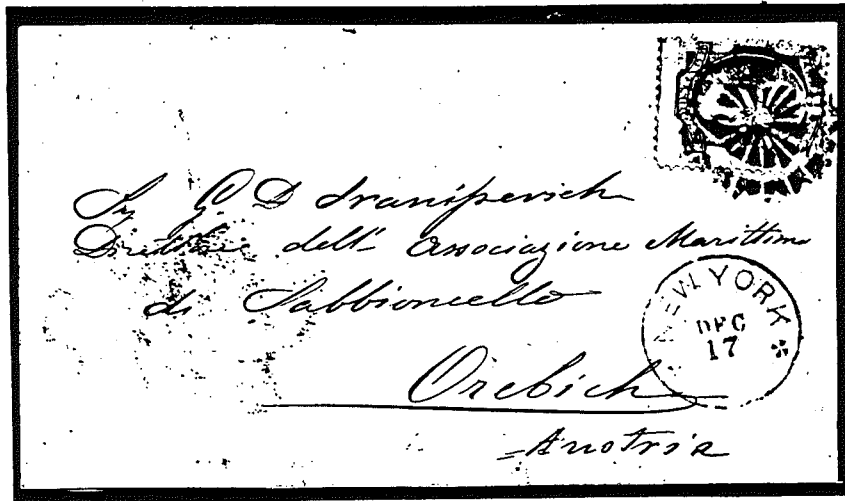 Sig G. D. Ivanisevich
Direttore dell' Associazione Marittima
di Sabbioncello
NEW YORK
DEC
17
Orebich
Austria